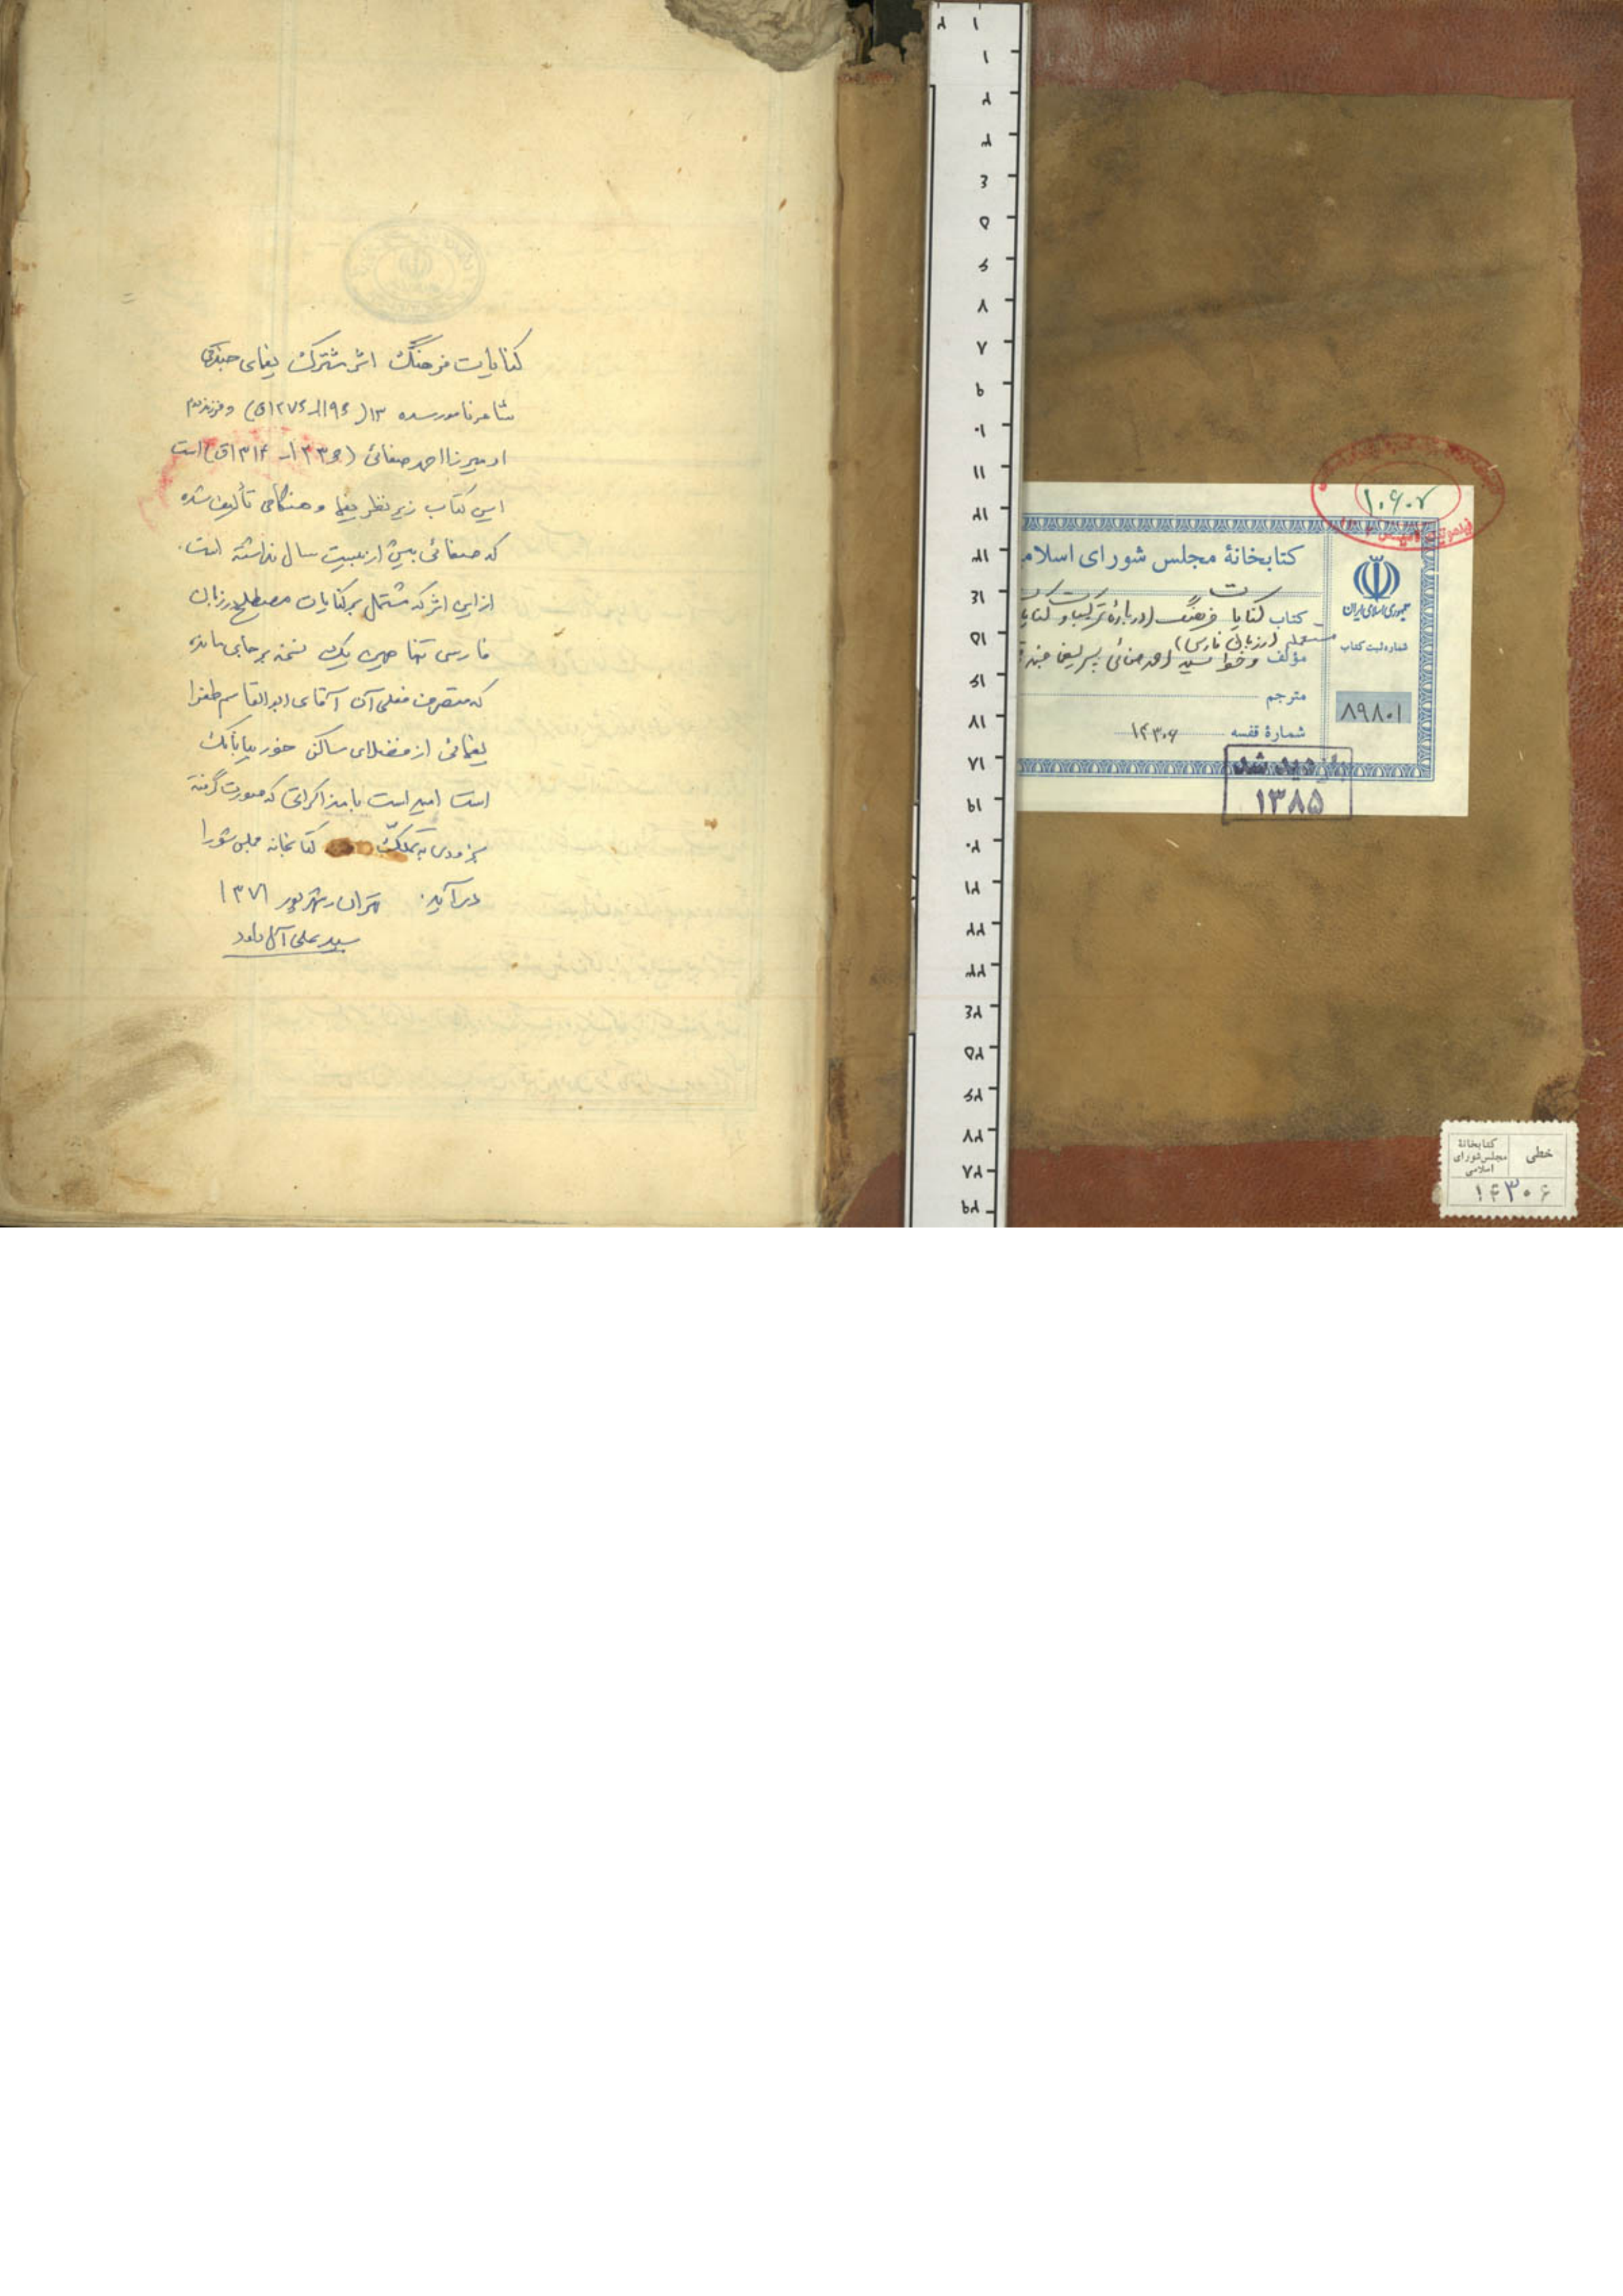 کنایات فرهنگ اثر مشترک یغمای جندقی
شاعر نامور سده ۱۳ (۱۱۹۶ـ۱۲۷۶ق) و فرزند دوم
او میرزا احمد صفائی (۱۲۳۶ـ ۱۳۱۴ق) است
این کتاب زیر نظر یغما و هنگامی تألیف شده
که صفائی بیش از بیست سال نداشته است.
از این اثر که مشتمل بر کنایات مصطلح در زبان
فارسی تنها همین یک نسخه بر جای مانده
که متصرف فعلی آن آقای ابوالقاسم طغرا
یغمائی از فضلای ساکن خور بیابانک
است امید است با مذاکراتی که صورت گرفته
بزودی به تملک کتابخانه مجلس شورا
درآید. تهران، شهریور ۱۳۷۱
سید علی آل داود
۱۰۶۰۷
کتابخانهٔ مجلس شورای اسلام
جمهوری اسلامی ایران
کتاب کنایات فرهنگ (در بارهٔ ترکیبات و کنایا
مستعمل در زبان فارسی)
مؤلف وخط سید احمد صفائی پسر یغما جند
مترجم
شمارهٔ قفسه ۱۴۳۰۶
شماره ثبت کتاب
۸۹۸۰۱
بازدید شد
۱۳۸۵
خطی
کتابخانهٔ
مجلس شورای
اسلامی
۱۴۳۰۶